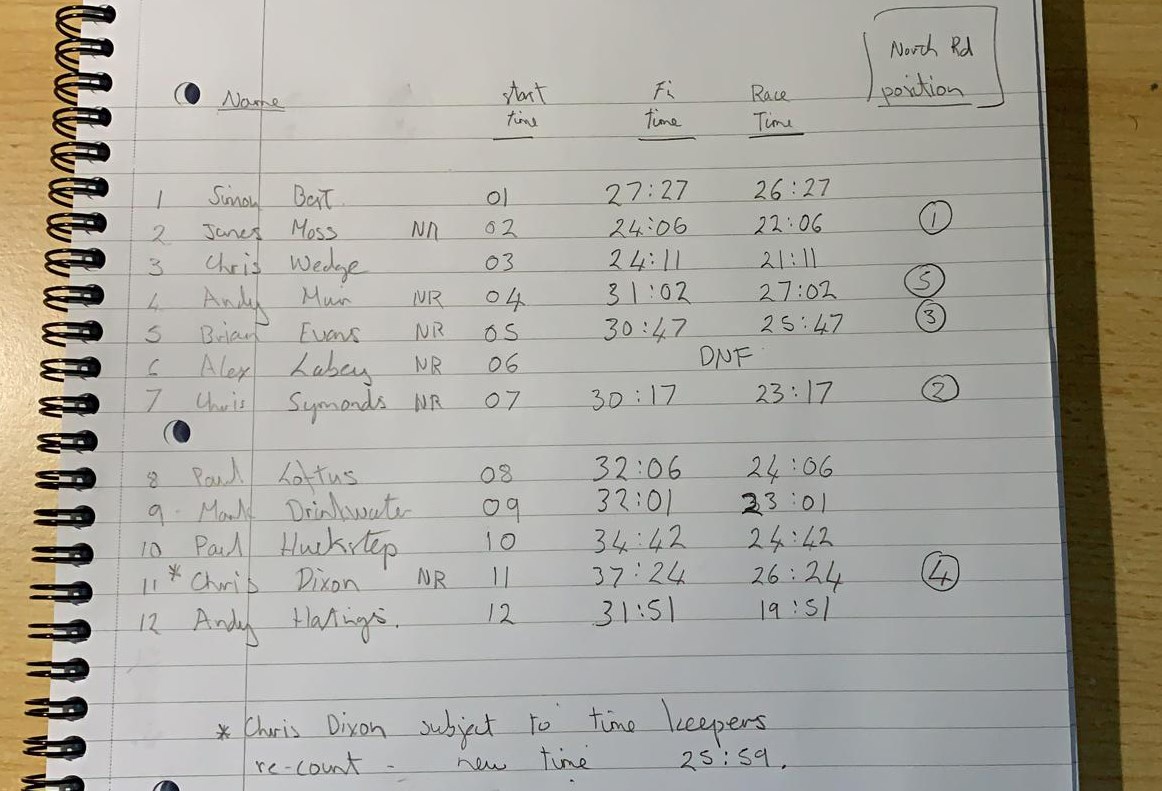 North Rd
Name start Fi Race position
time time Time
1 Simon Bert 01 27:27 26:27
2 James Moss NR 02 24:06 22:06 1
3 Chris Wedge 03 24:11 21:11
4 Andy Mun NR 04 31:02 27:02 5
5 Brian Evans NR 05 30:47 25:47 3
6 Alex Labey NR 06 DNF
7 Chris Symonds NR 07 30:17 23:17 2
8 Paul Loftus 08 32:06 24:06
9 Mark Drinkwater 09 32:01 23:01
10 Paul Huckstep 10 34:42 24:42
11 * Chris Dixon NR 11 37:24 26:24 4
12 Andy 12 31:51 19:51
* Chris Dixon subject to time keepers
re-count - new time 25:59.